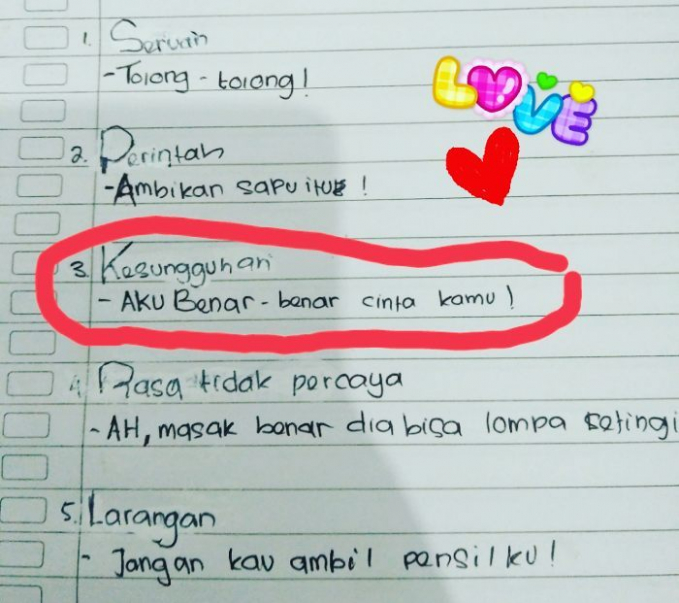 LOVE
1. Seruan
- Tolong - tolong!
2. Perintah
- Ambikan sapu itu !
3. Kesungguhan
- AKU Benar - benar cinta kamu !
4. Rasa tidak percaya
- AH, masak benar dia bisa lompa setingi
5. Larangan
- Jangan kau ambil pensilku!